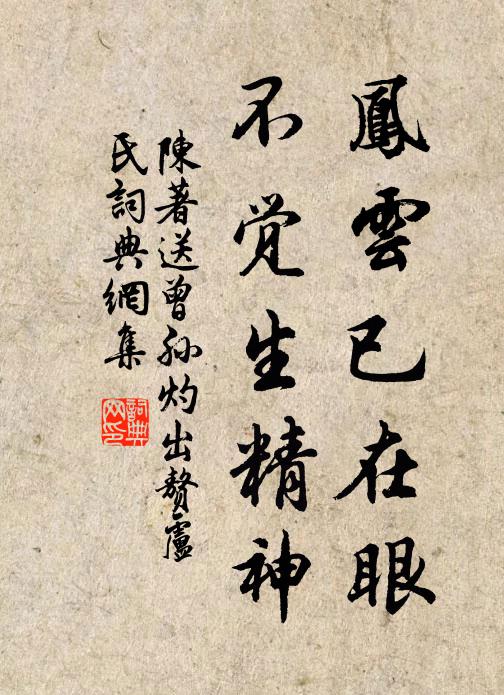 鳳雲已在眼
不觉生精神
陳著送曾孙灼出贅盧
氏詞典網集
詞典网印